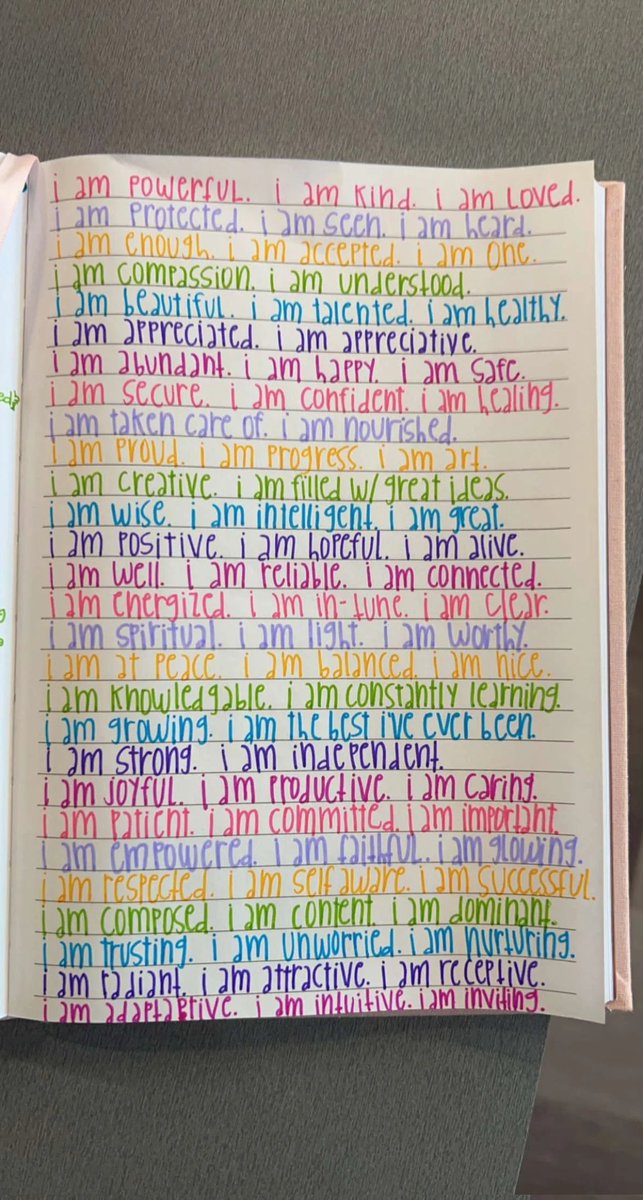 i am powerful. i am kind. i am loved.
i am protected. i am seen. i am heard.
i am enough. i am accepted. i am one.
i am compassion. i am understood.
i am beautiful. i am talented. i am healthy.
i am appreciated. i am appreciative.
i am abundant. i am happy. i am safe.
i am secure. i am confident. i am healing.
i am taken care of. i am nourished.
i am proud. i am progress. i am art.
i am creative. i am filled w/ great ideas.
i am wise. i am intelligent. i am great.
i am positive. i am hopeful. i am alive.
i am well. i am reliable. i am connected.
i am energized. i am in-tune. i am clear.
i am spiritual. i am light. i am worthy.
i am at peace. i am balanced. i am nice.
i am knowledgable. i am constantly learning.
i am growing. i am the best i've ever been.
i am strong. i am independent.
i am joyful. i am productive. i am caring.
i am patient. i am committed. i am important.
i am empowered. i am faithful. i am glowing.
i am respected. i am self aware. i am successful.
i am composed. i am content. i am dominant.
i am trusting. i am unworried. i am nurturing.
i am radiant. i am attractive. i am receptive.
i am adaptaptive. i am intuitive. i am inviting.